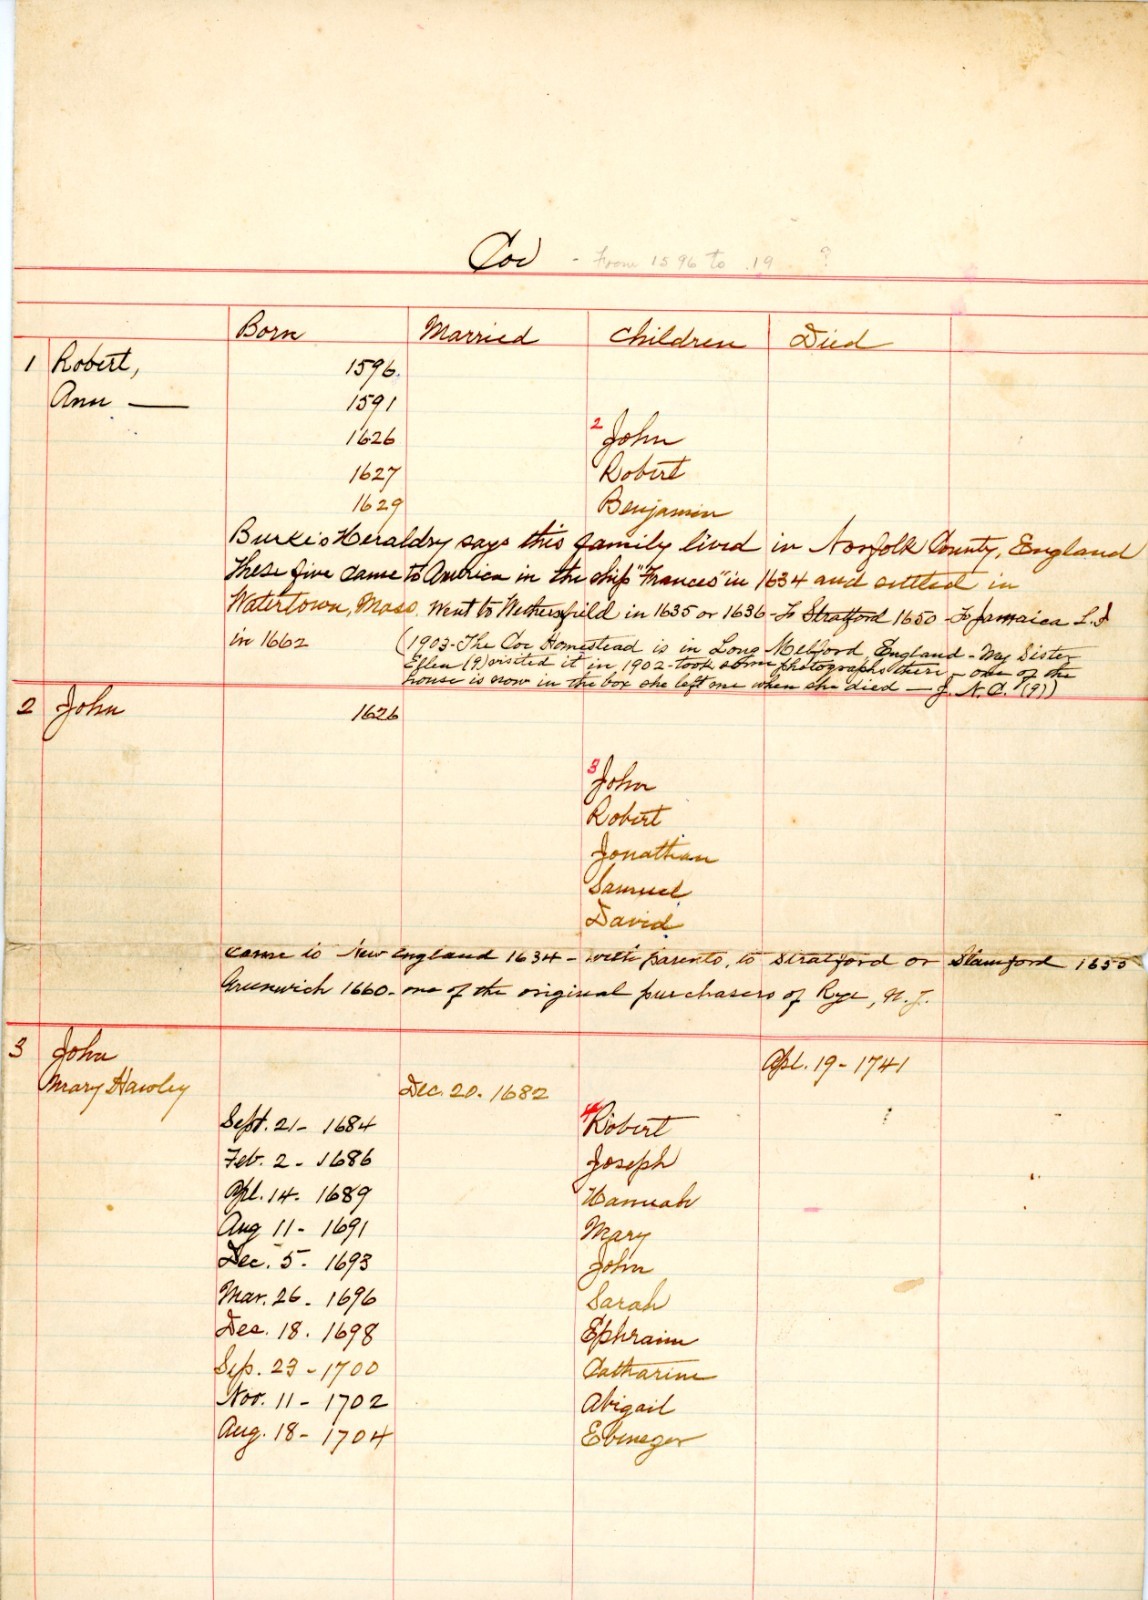 Coe - From 1596 to 19 ?
Born Married Children Died
1 Robert, 1596.
Ann — 1591
1626 2 John
1627 Robert
1629 Benjamin
Burke's Heraldry says this family lived in Norfolk County, England
These five came to America in the ship "Frances" in 1634 and settled in
Watertown, Mass. Went to Wethersfield in 1635 or 1636 - To Stratford 1650 - To Jamaica L.I
in 1662 (1903 - The Coe Homestead is in Long Melford, England - My Sister
Ellen (9) visited it in 1902 - took some photographs there - one of the
house is now in the box she left me when she died — J. N. C. (9))
2 John 1626
3 John
Robert
Jonathan
Samuel
David
Came to New England 1634 - with parents, to Stratford or Stamford 1650
Greenwich 1660 - one of the original purchasers of Rye, N.Y.
3 John Apl. 19 - 1741
Mary Hawley Dec. 20. 1682
Sept. 21 - 1684 4 Robert
Feb. 2 - 1686 Joseph
Apl. 14. 1689 Hannah
Aug 11 - 1691 Mary
Dec. 5 - 1693 John
Mar. 26 - 1696 Sarah
Dec. 18. 1698 Ephraim
Sep. 23 - 1700 Catharine
Nov. 11 - 1702 Abigail
Aug. 18 - 1704 Ebenezer